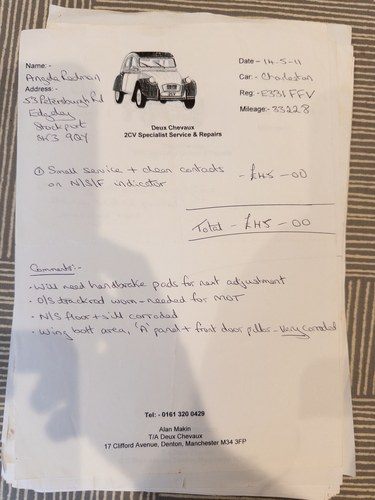 Name:-
Angela Redman
Address:-
53 Petersburgh Rd
Edgeley
Stockport
SK3 9QY
Date - 14-5-11
Car:- Charleston
Reg:- E331 FFV
Mileage:- 33228
Deux Chevaux
2CV Specialist Service & Repairs
① Small service + clean contacts - £45-00
on N/S/F indicator
Total - £45-00
Comments:-
• Will need handbrake pads for next adjustment
• O/S trackrod worn - needed for MOT
• N/S floor + sill corroded
• Wing bolt area, 'A' panel + front door pillar - Very corroded
Tel: - 0161 320 0429
Alan Makin
T/A Deux Chevaux
17 Clifford Avenue, Denton, Manchester M34 3FP